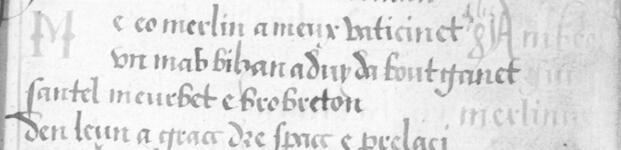 Me eo merlin a meux vaticinet
vn mab bihan a duy da bout ganet
santel meurbet e bro breton
den leun a gracc dre spacc e prelaci